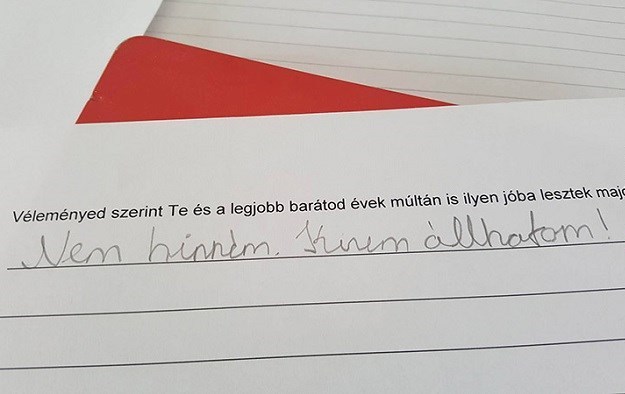 Véleményed szerint Te és a legjobb barátod évek múltán is ilyen jóba lesztek majd
Nem hinném. Ki nem állhatom!